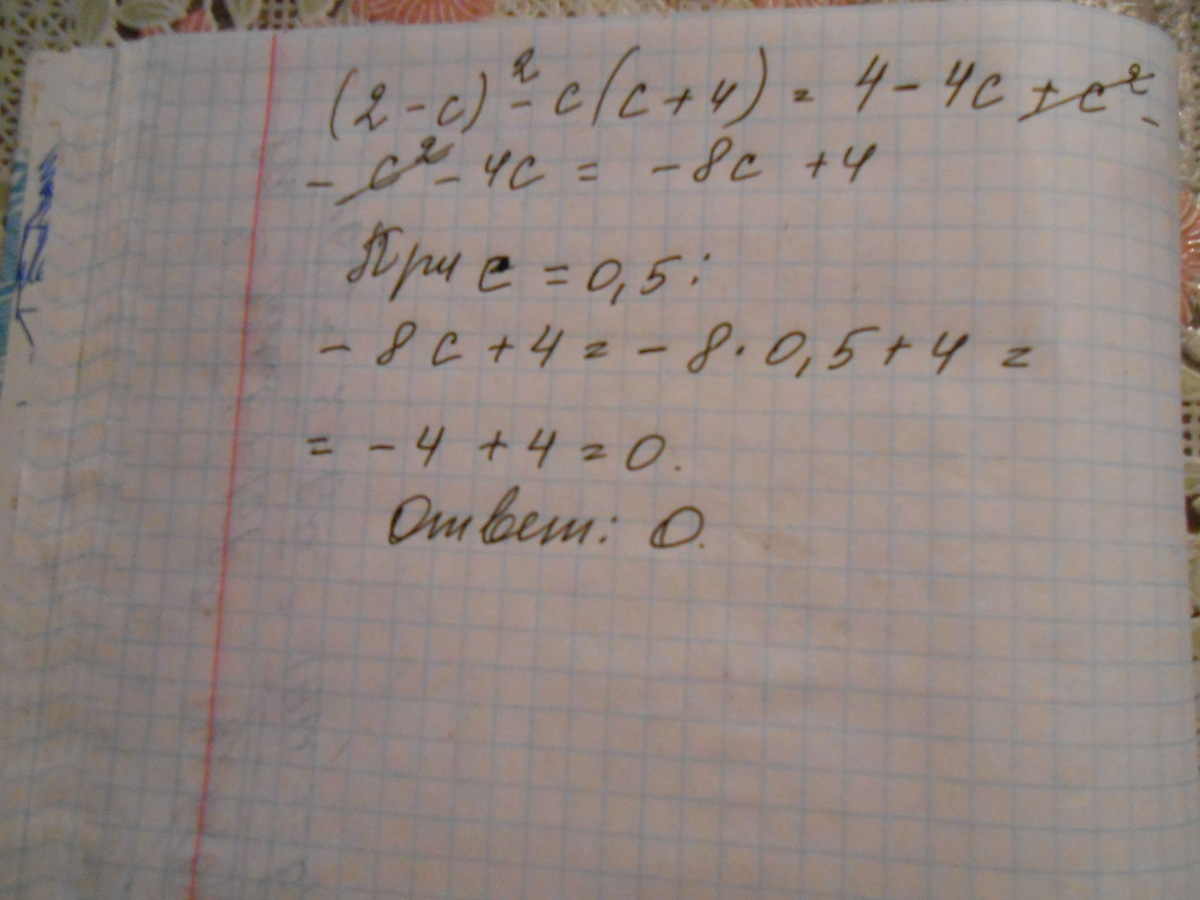 (2-c)²-c(c+4) = 4-4c+c²-
-c²-4c = -8c +4
При c = 0,5:
-8c+4 = -8·0,5+4 =
= -4 +4 = 0.
Ответ: 0.